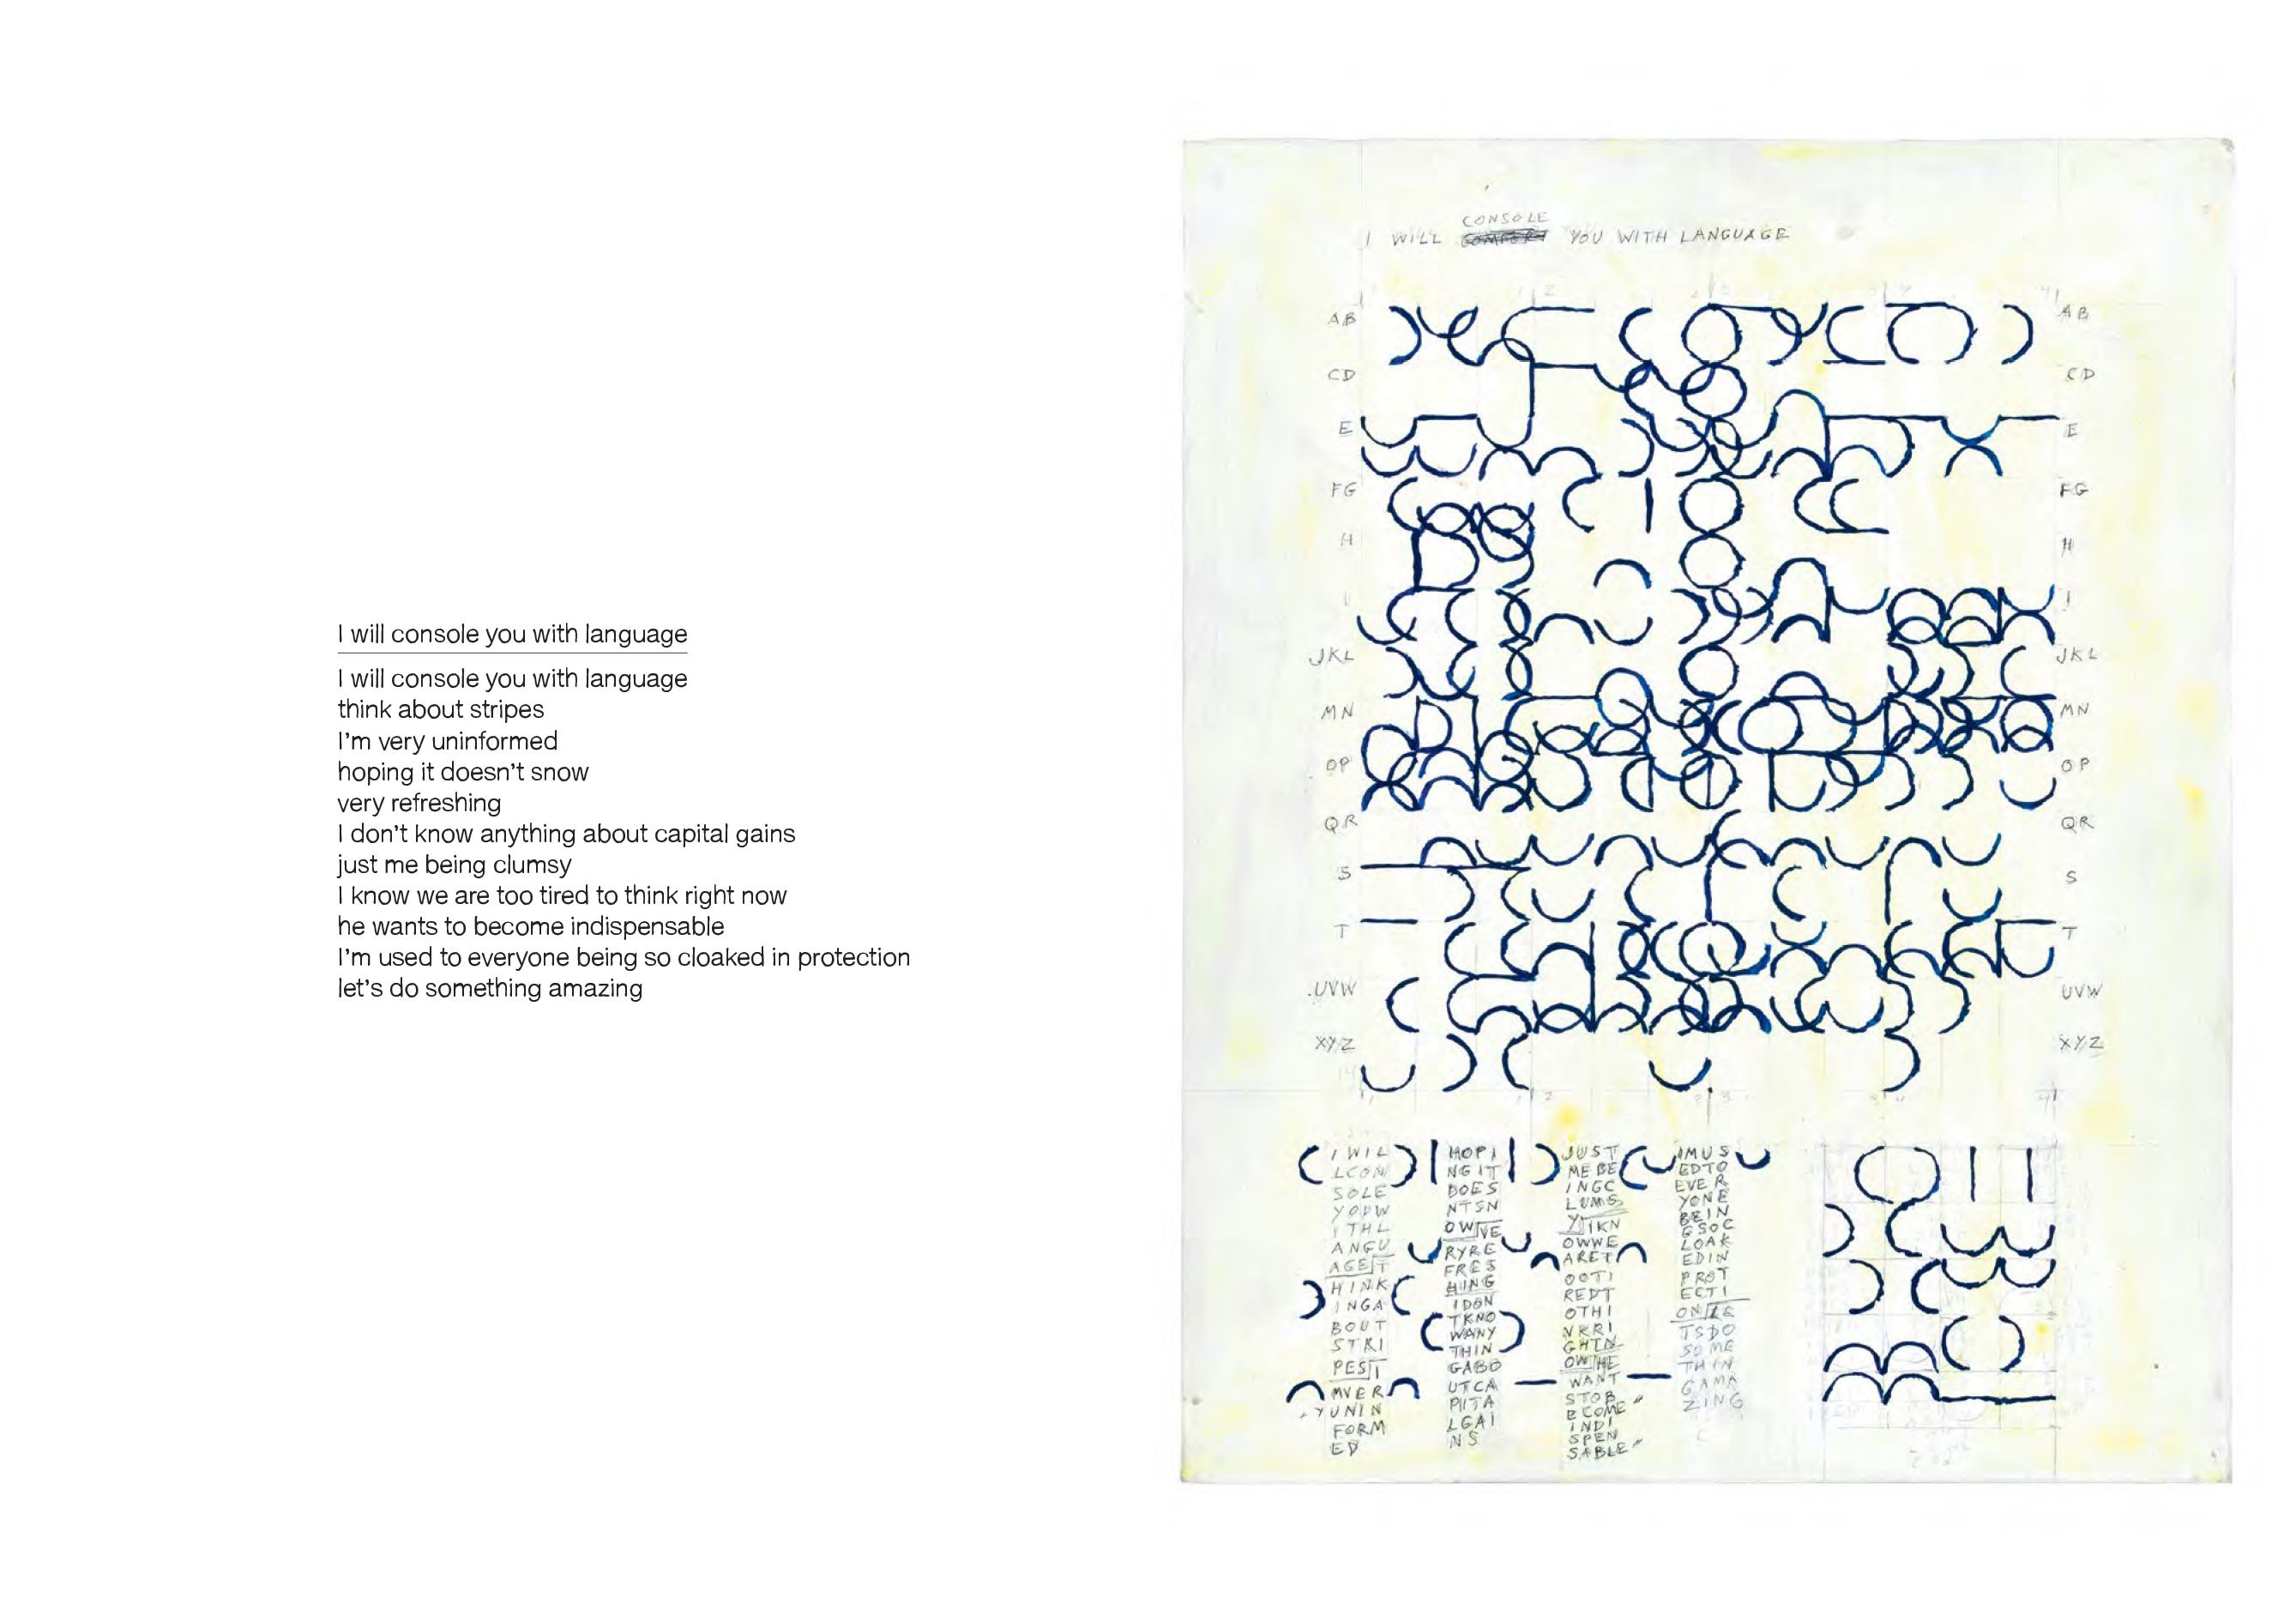 I will console you with language
I will console you with language
think about stripes
I'm very uninformed
hoping it doesn't snow
very refreshing
I don't know anything about capital gains
just me being clumsy
I know we are too tired to think right now
he wants to become indispensable
I'm used to everyone being so cloaked in protection
let's do something amazing
CONSOLE
I WILL YOU WITH LANGUAGE
AB AB
CD CD
E E
FG FG
H H
I I
JKL JKL
MN MN
OP OP
QR QR
S S
T T
UVW UVW
XYZ XYZ
IWIL
LCON
SOLE
YOUW
ITHL
ANGU
AGET
HINK
INGA
BOUT
STRI
PESI
MVER
YUNIN
FORM
ED
HOPI
NGIT
DOES
NTSN
OWVE
RYRE
FRES
HING
IDON
TKNO
WANY
THIN
GABO
UTCA
PITA
LGAI
NS
JUST
MEBE
INGC
LUMS
YIKN
OWWE
ARET
OOTI
REDT
OTHI
NKRI
GHTN
OWHE
WANT
STOB
ECOME
INDI
SPEN
SABLE
IMUS
EDTO
EVER
YONE
BEIN
GSOC
LOAK
EDIN
PROT
ECTI
ONLE
TSDO
SOME
THIN
GAMA
ZING